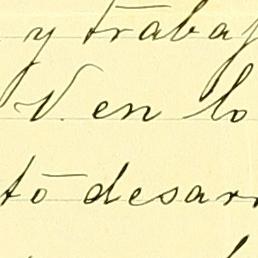 y trabaj
V. en lo
to desarr